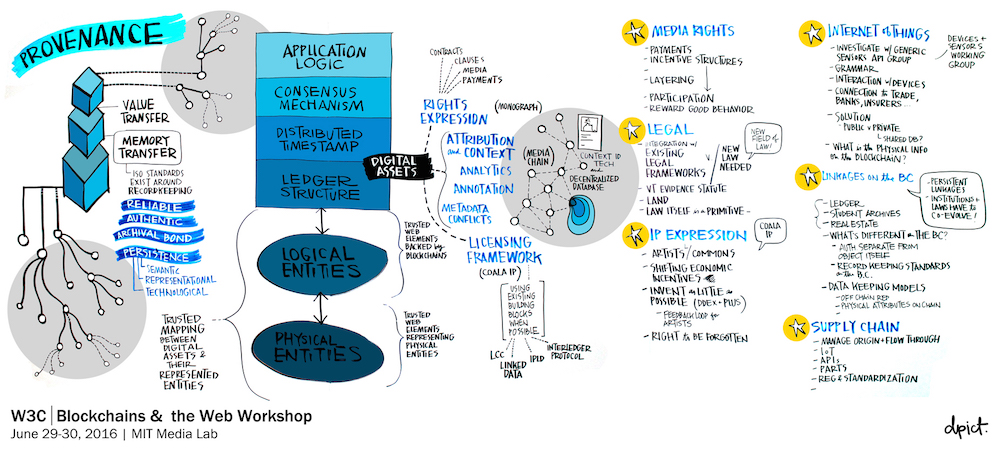 PROVENANCE
VALUE
TRANSFER
MEMORY
TRANSFER
ISO STANDARDS
EXIST AROUND
RECORDKEEPING
RELIABLE
AUTHENTIC
ARCHIVAL BOND
PERSISTENCE
- SEMANTIC
- REPRESENTATIONAL
- TECHNOLOGICAL
TRUSTED
MAPPING
BETWEEN
DIGITAL
ASSETS &
THEIR
REPRESENTED
ENTITIES
APPLICATION
LOGIC
CONSENSUS
MECHANISM
DISTRIBUTED
TIMESTAMP
LEDGER
STRUCTURE
LOGICAL
ENTITIES
PHYSICAL
ENTITIES
TRUSTED
WEB
ELEMENTS
BACKED by
BLOCKCHAINS
TRUSTED
WEB
ELEMENTS
REPRESENTING
PHYSICAL
ENTITIES
DIGITAL
ASSETS
CONTRACTS
CLAUSES
MEDIA
PAYMENTS
RIGHTS
EXPRESSION
(MONOGRAPH)
ATTRIBUTION
and CONTEXT
ANALYTICS
ANNOTATION
METADATA
CONFLICTS
LICENSING
FRAMEWORK
(COALA IP)
USING
EXISTING
BUILDING
BLOCKS
WHEN
POSSIBLE
LCC
LINKED
DATA
IPLD
INTERLEDGER
PROTOCOL
(MEDIA
CHAIN)
CONTEXT ID
TECH
and
DECENTRALIZED
DATABASE
MEDIA RIGHTS
- PAYMENTS
- INCENTIVE STRUCTURES
- LAYERING
- PARTICIPATION
- REWARD GOOD BEHAVIOR
LEGAL
- INTEGRATION w/
EXISTING
LEGAL
FRAMEWORKS
NEW
LAW
NEEDED
NEW
FIELD of
LAW!
- VT EVIDENCE STATUTE
- LAND
- LAW ITSELF is a PRIMITIVE -
IP EXPRESSION
COALA
IP
- ARTISTS / COMMONS
- SHIFTING ECONOMIC
INCENTIVES
- INVENT as LITTLE as
POSSIBLE (DDEX-PLUS)
- FEEDBACK LOOP for
ARTISTS
- RIGHT to BE FORGOTTEN
INTERNET of THINGS
- INVESTIGATE w/ GENERIC
SENSORS API GROUP
- GRAMMAR
- INTERACTION w/ DEVICES
- CONNECTION to TRADE,
BANKS, INSURERS...
- SOLUTION
- PUBLIC v PRIVATE
SHARED DB?
- WHAT is the PHYSICAL INFO
on the BLOCKCHAIN?
DEVICES +
SENSORS
WORKING
GROUP
LINKAGES on the BC
- PERSISTENT
LINKAGES
- INSTITUTIONS &
LAWS HAVE to
CO-EVOLVE!
- LEDGER
- STUDENT ARCHIVES
- REAL ESTATE
- WHAT'S DIFFERENT on the BC?
- AUTH SEPARATE FROM
OBJECT ITSELF
- RECORD KEEPING STANDARDS
on the B.C.
- DATA KEEPING MODELS
- OFF CHAIN REP
- PHYSICAL ATTRIBUTES on CHAIN
SUPPLY CHAIN
- MANAGE ORIGIN + FLOW THROUGH
- IoT
- APIs
- PARTS
- REG & STANDARDIZATION
W3C | Blockchains & the Web Workshop
June 29-30, 2016 | MIT Media Lab
dpict.